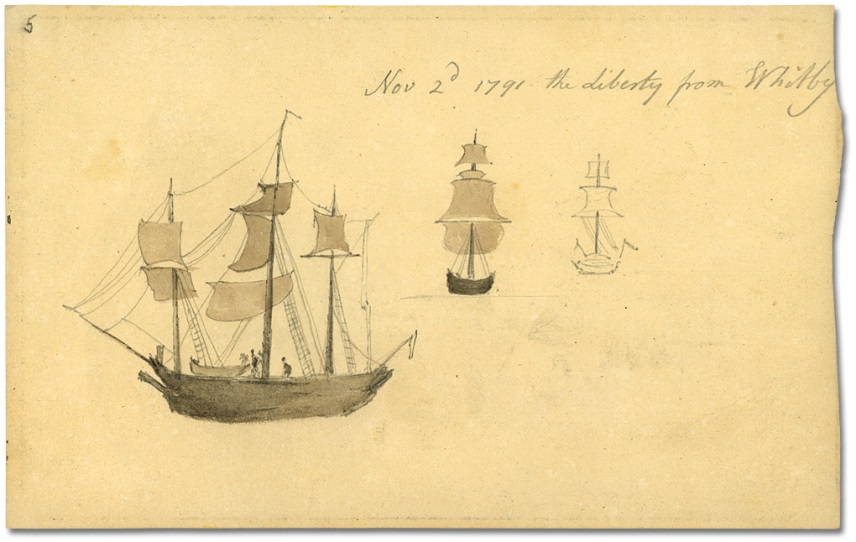 5
Nov 2d 1791 the Liberty from Whitby